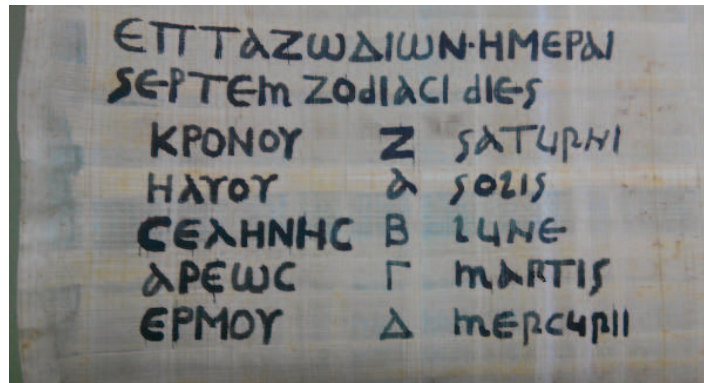 ΕΠΤΑ ΖωΔΙωΝ·ΗΜΕΡΑΙ
SEPTEM ZOdIACI dIES
ΚΡΟΝΟΥ Ζ SATURNI
ΗΛΥΟΥ Α SOLIS
CΕΛΗΝΗC Β LUNE
ΑΡΕωC Γ MARTIS
ΕΡΜΟΥ Δ MERCURII